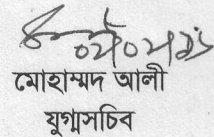 মোহাম্মদ আলী
যুগ্মসচিব